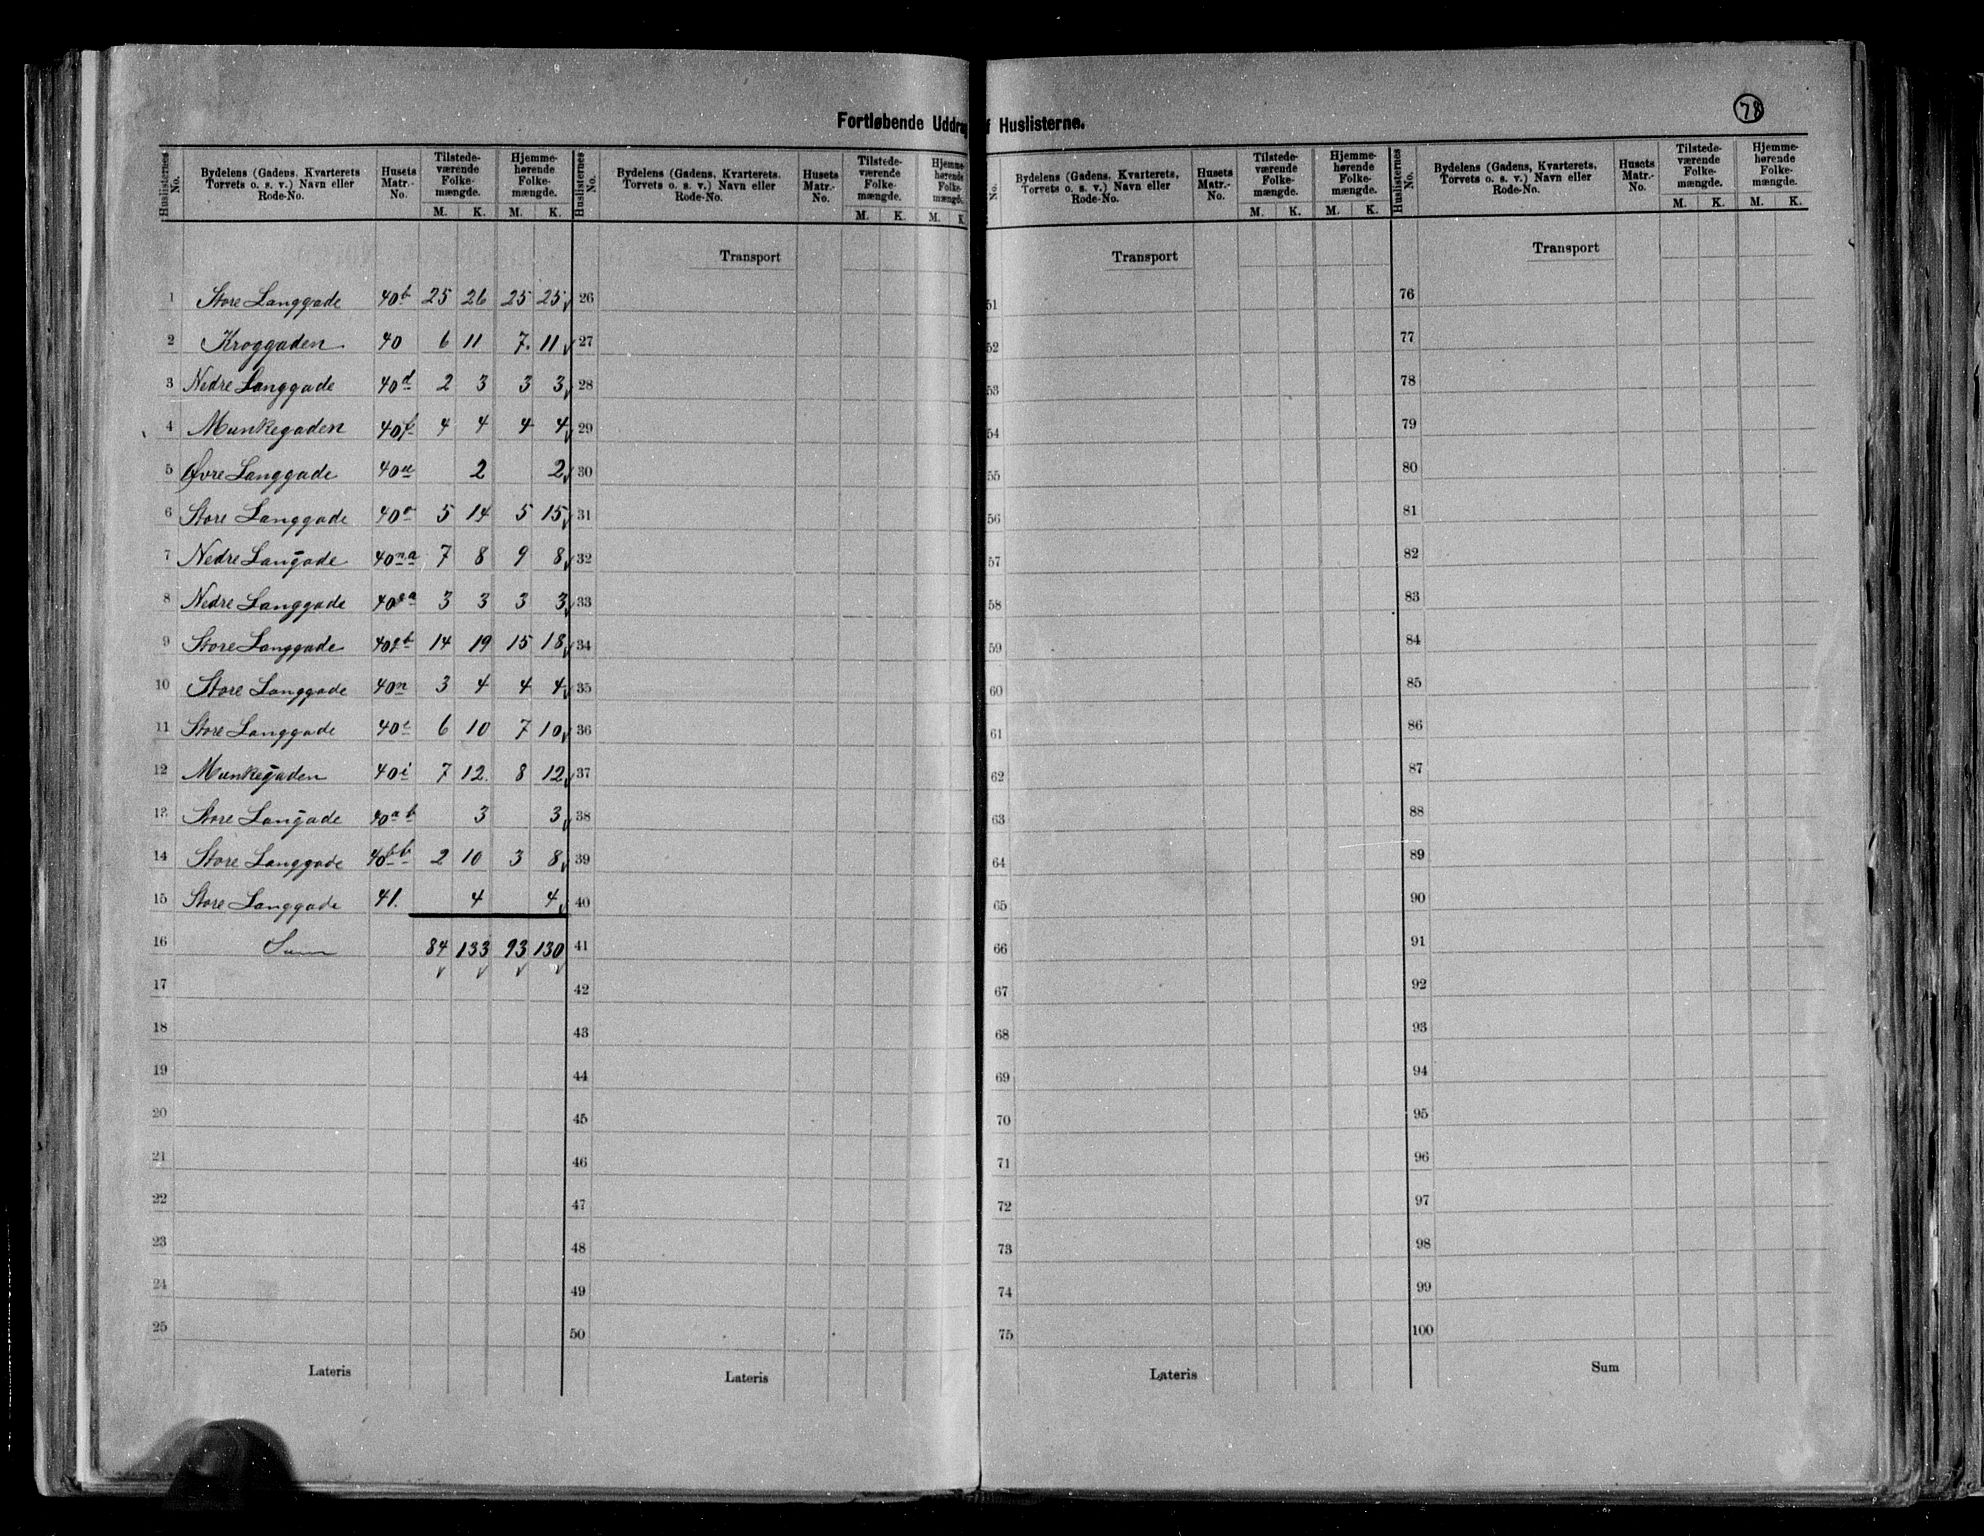 78
Fortløbende Uddrag f Huslisterne.
Huslisternes No. Bydelens (Gadens, Kvarterets Torvets o. s. v.) Navn eller Rode-No. Husets Matr.-No. Tilstedeværende Folkemængde. M. K. Hjemmehørende Folkemængde. M. K.
Huslisternes No. Bydelens (Gadens, Kvarterets, Torvets o. s. v.) Navn eller Rode-No. Husets Matr.-No. Tilstedeværende Folkemængde. M. K. Hjemmehørende Folkemængd M. K
No. Bydelens (Gadens, Kvarterets, Torvets o. s. v.) Navn eller Rode-No. Husets Matr.-No. Tilstedeværende Folkemængde. M. K. Hjemmehørende Folkemængde. M. K.
Huslisternes No. Bydelens (Gadens, Kvarterets, Torvets o. s. v.) Navn eller Rode-No. Husets Matr.-No. Tilstedeværende Folkemængde. M. K. Hjemmehørende Folkemængde. M. K.
Transport Transport Transport
1 Store Langgade 40b 25 26 25 25 26 51 76
2 Kroggaden 40 6 11 7. 11 27 52 77
3 Nedre Langgade 40d 2 3 3 3 28 53 78
4 Munkegaden 40f 4 4 4 4 29 54 79
5 Øvre Langgade 2 2 30 55 80
6 Store Langgade 5 14 5 15 31 56 81
7 Nedre Langade 40na 7 8 9 8 32 57 82
8 Nedre Langgade 3 3 3 3 33 58 83
9 Store Langgade 14 19 15 18 34 59 84
10 Store Langgade 40n 3 4 4 4 35 60 85
11 Store Langgade 6 10 7 10 36 61 86
12 Munkegaden 40i 7 12. 8 12 37 62 87
13 Store Langade 40ab 3 3 38 63 88
14 Store Langgade 2 10 3 8 39 64 89
15 Store Langgade 41. 4 4 40 65 90
16 Sum 84 133 93 130 41 66 91
17 42 67 92
18 43 68 93
19 44 69 94
20 45 70 95
21 46 71 96
22 47 72 97
23 48 73 98
24 49 74 99
25 50 75 100
Lateris Lateris Lateris Sum